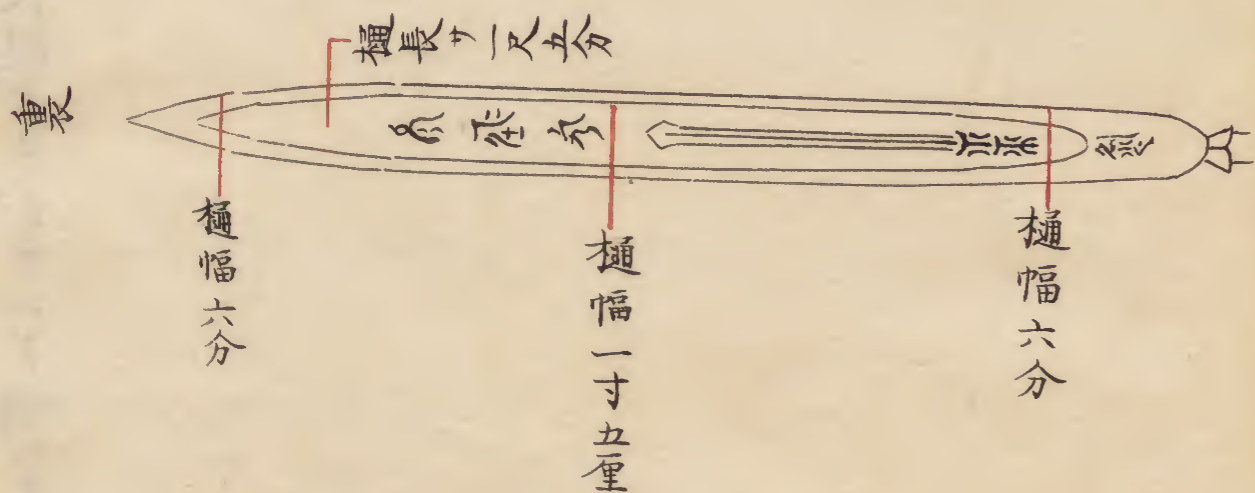 裏
樋長サ一尺五分
樋幅六分
樋幅一寸五厘
樋幅六分